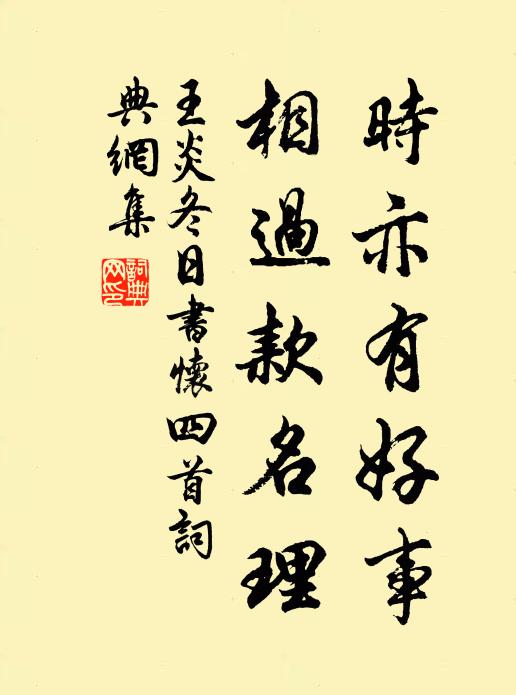 時亦有好事
相過款名理
王炎冬日書懷四首詞
典網集
詞典
网印